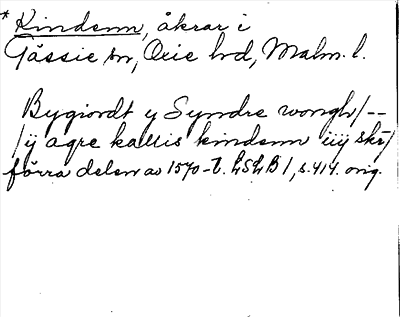 * Kindenn, åkrar i
Gässie sn, Oxie hd, Malm. l.
Bygiordt y Syndre wongh/--
/ÿ agre kallis kindenn iiÿ skr/
förra delen av 1570-t. LSLB 1, s. 414. orig.